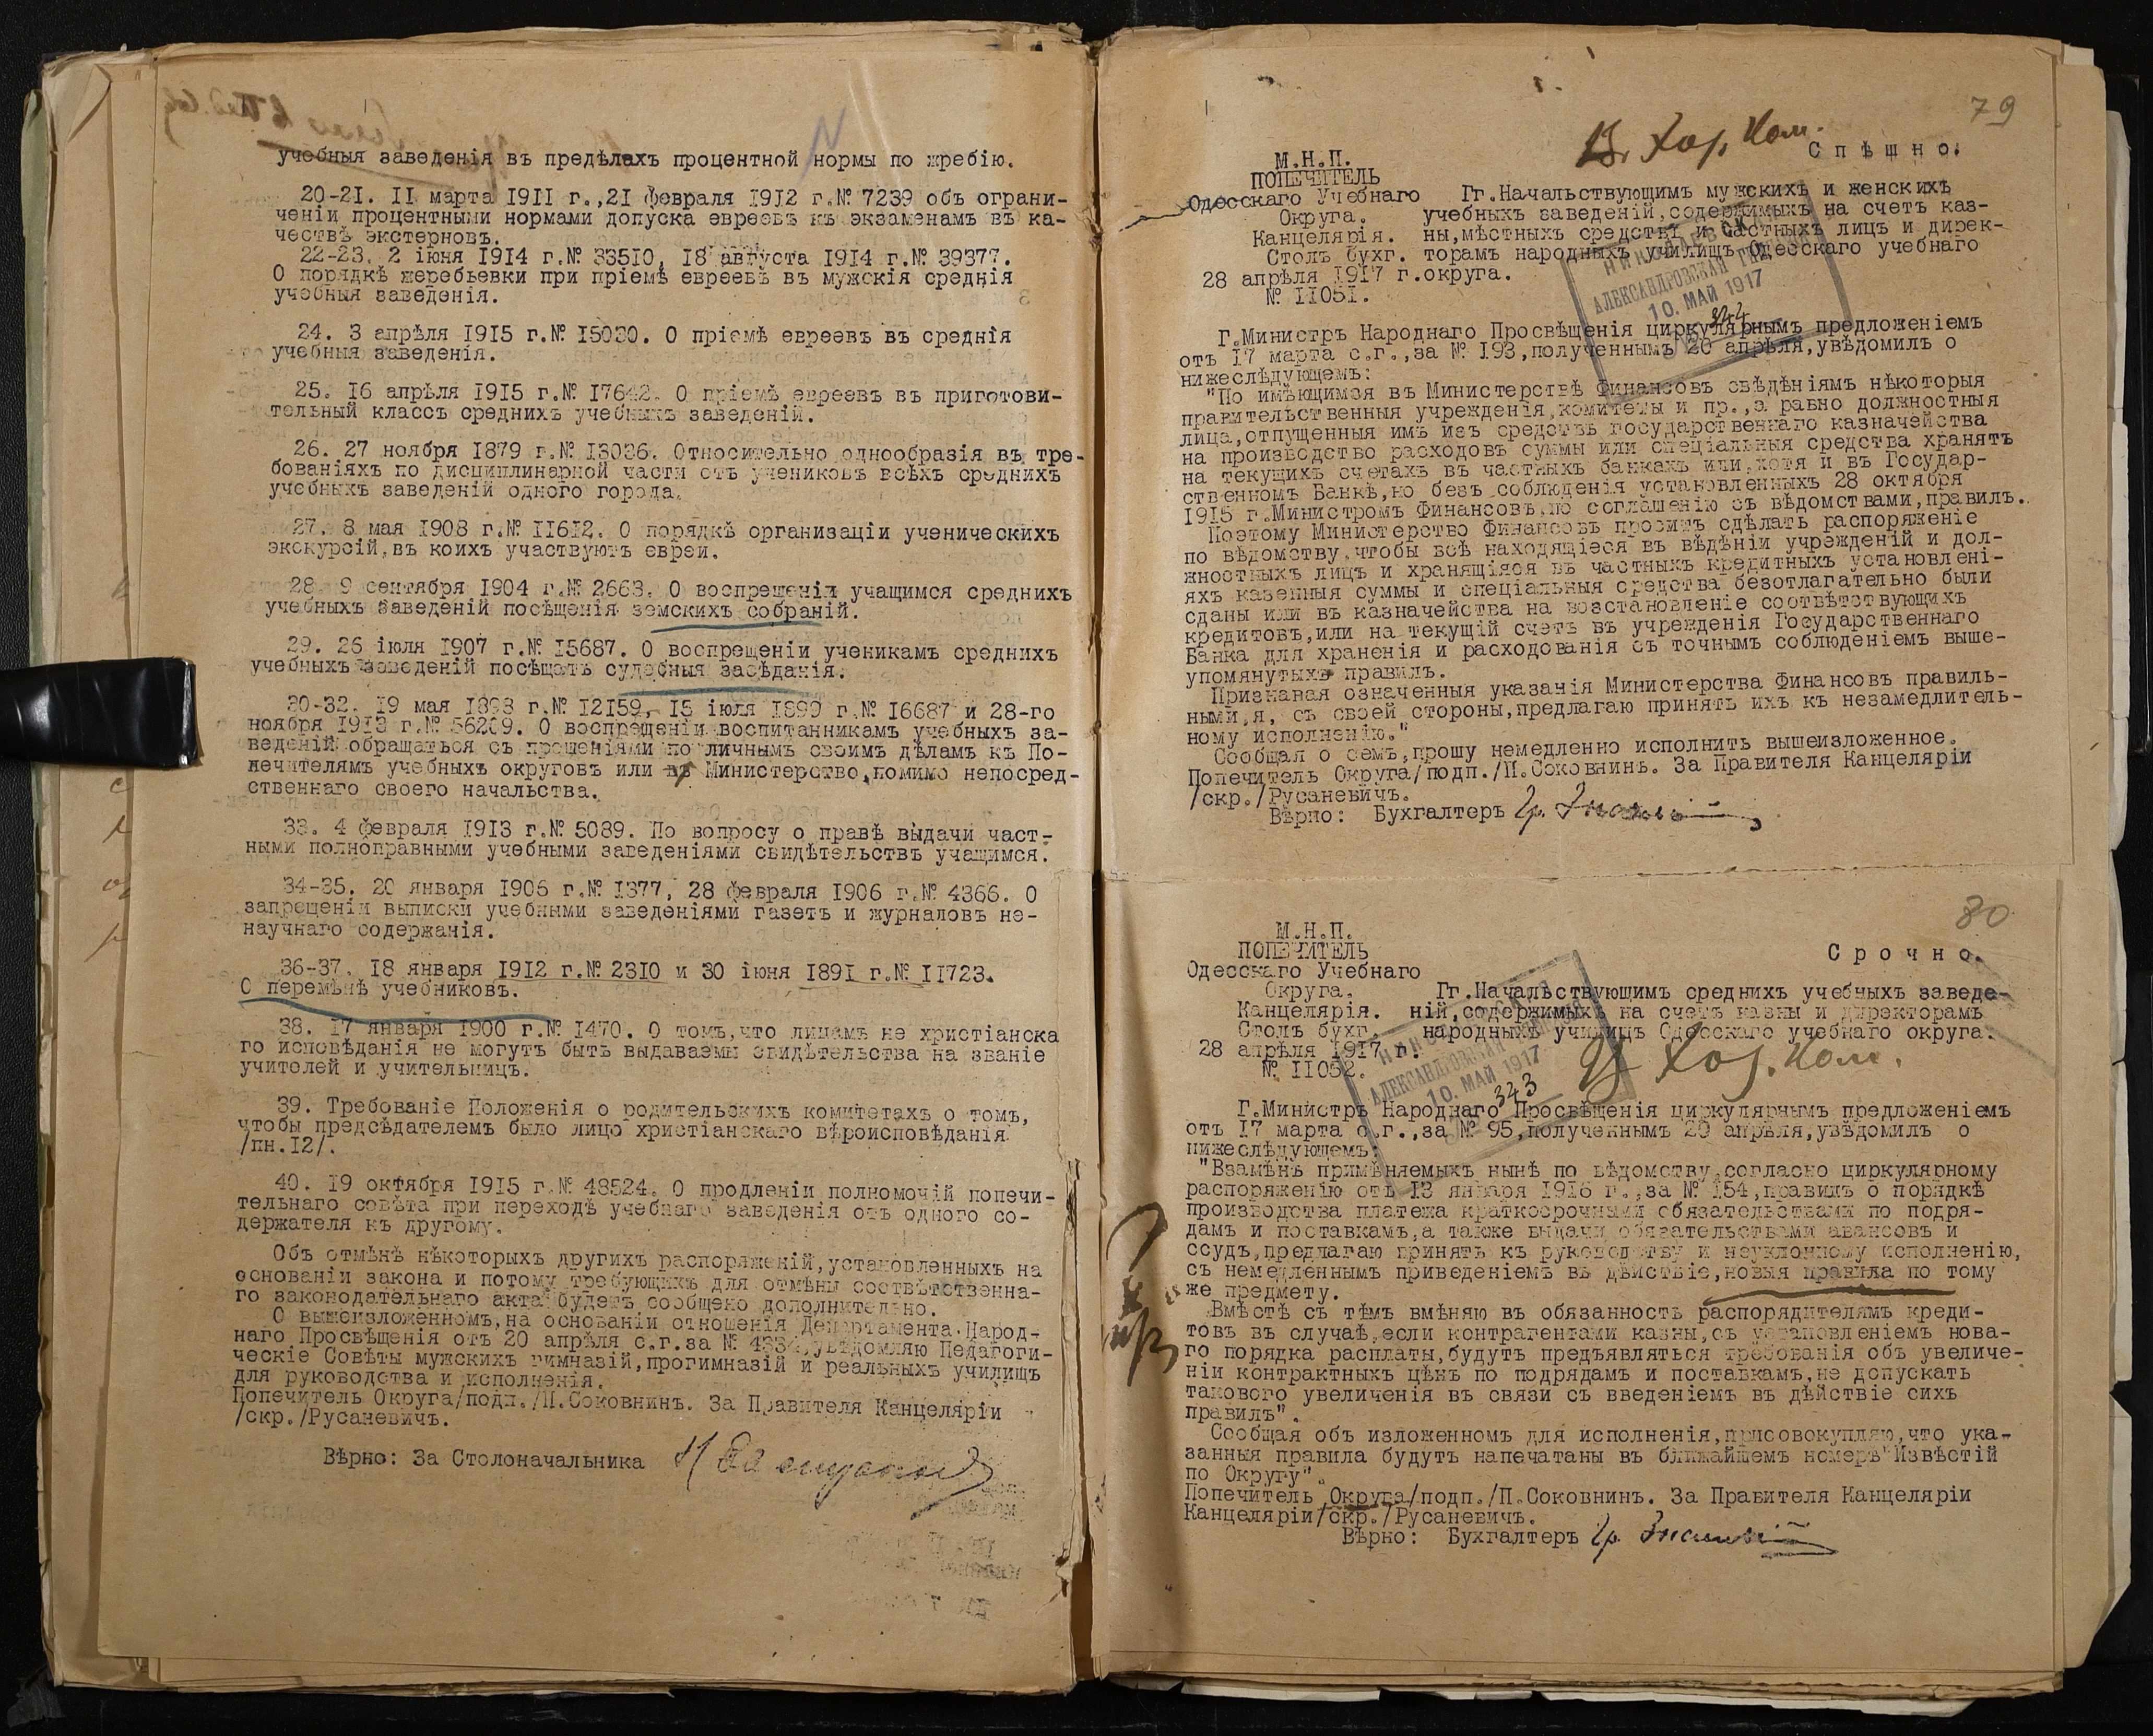 учебныя заведенія въ предѣлахъ процентной нормы по жребію.
20-21. II марта 1911 г.,21 февраля 1912 г.№ 7239 объ ограни-
ченіи процентными нормами допуска евреевъ къ экзаменамъ въ ка-
чествѣ экстерновъ.
22-23. 2 іюня 1914 г.№ 33510, 18 августа 1914 г.№ 39377.
О порядкѣ жеребьевки при пріемѣ евреевъ въ мужскія среднія
учебныя заведенія.
24. 3 апрѣля 1915 г.№ 15030. О пріемѣ евреевъ въ среднія
учебныя заведенія.
25. 16 апрѣля 1915 г.№ 17642. О пріемѣ евреевъ въ приготови-
тельный классъ среднихъ учебныхъ заведеній.
26. 27 ноября 1879 г.№ 13036. Относительно однообразія въ тре-
бованіяхъ по дисциплинарной части отъ учениковъ всѣхъ среднихъ
учебныхъ заведеній одного города.
27. 8 мая 1908 г.№ 11612. О порядкѣ организаціи ученическихъ
экскурсій,въ коихъ участвуютъ евреи.
28. 9 сентября 1904 г.№ 2663. О воспрещеніи учащимся среднихъ
учебныхъ заведеній посѣщенія земскихъ собраній.
29. 26 іюля 1907 г.№ 15687. О воспрещеніи ученикамъ среднихъ
учебныхъ заведеній посѣщать судебныя засѣданія.
30-32. 19 мая 1898 г.№ 12159, 15 іюля 1899 г.№ 16687 и 28-го
ноября 1913 г.№ 56209. О воспрещеніи воспитанникамъ учебныхъ за-
веденій обращаться съ прошеніями по личнымъ своимъ дѣламъ къ По-
печителямъ учебныхъ округовъ или въ Министерство,помимо непосред-
ственнаго своего начальства.
33. 4 февраля 1913 г.№ 5089. По вопросу о правѣ выдачи част-
ными полноправными учебными заведеніями свидѣтельствъ учащимся.
34-35. 20 января 1906 г.№ 1377, 28 февраля 1906 г.№ 4366. О
запрещеніи выписки учебными заведеніями газетъ и журналовъ не-
научнаго содержанія.
36-37. 18 января 1912 г.№ 2310 и 30 іюня 1891 г.№ 11723.
О перемѣнѣ учебниковъ.
38. 17 января 1900 г.№ 1470. О томъ,что лицамъ не христіанска
го исповѣданія не могутъ быть выдаваемы свидѣтельства на званіе
учителей и учительницъ.
39. Требованіе Положенія о родительскихъ комитетахъ о томъ,
чтобы предсѣдателемъ было лицо христіанскаго вѣроисповѣданія
/пн.12/.
40. 19 октября 1915 г.№ 48524. О продленіи полномочій попечи-
тельнаго совѣта при переходѣ учебнаго заведенія отъ одного со-
держателя къ другому.
Объ отмѣнѣ нѣкоторыхъ другихъ распоряженій,установленныхъ на
основаніи закона и потому требующихъ для отмѣны соотвѣтственна-
го законодательнаго акта будетъ сообщено дополнительно.
О вышеизложенномъ,на основаніи отношенія Департамента Народ-
наго Просвѣщенія отъ 20 апрѣля с.г.за № увѣдомляю Педагоги-
ческіе Совѣты мужскихъ гимназій,прогимназій и реальныхъ училищъ
для руководства и исполненія.
Попечитель Округа/подп./П.Соковнинъ. За Правителя Канцеляріи
/скр./Русаневичъ.
Вѣрно: За Столоначальника
79
В Хоз. Ком.
Спѣшно.
М.Н.П.
ПОПЕЧИТЕЛЬ
Одесскаго Учебнаго
Округа.
Канцелярія.
Столъ бухг.
28 апрѣля 1917 г.
№ 11051.
Гг.Начальствующимъ мужскихъ и женскихъ
учебныхъ заведеній,содержимыхъ на счетъ каз-
ны,мѣстныхъ средствъ и частныхъ лицъ и дирек-
торамъ народныхъ училищъ Одесскаго учебнаго
округа.
АЛЕКСАНДРОВСКАЯ
10. МАЙ 1917
344
Г.Министръ Народнаго Просвѣщенія циркулярнымъ предложеніемъ
отъ 17 марта с.г.,за № 193,полученнымъ 20 апрѣля,увѣдомилъ о
нижеслѣдующемъ:
"По имѣющимся въ Министерствѣ Финансовъ свѣдѣніямъ нѣкоторыя
правительственныя учрежденія,комитеты и пр.,а равно должностныя
лица,отпущенныя имъ изъ средствъ государственнаго казначейства
на производство расходовъ суммы или спеціальныя средства хранятъ
на текущихъ счетахъ въ частныхъ банкахъ или,хотя и въ Государ-
ственномъ Банкѣ,но безъ соблюденія установленныхъ 28 октября
1915 г.Министромъ Финансовъ,по соглашенію съ вѣдомствами,правилъ.
Поэтому Министерство Финансовъ проситъ сдѣлать распоряженіе
по вѣдомству,чтобы всѣ находящіеся въ вѣдѣніи учрежденій и дол-
жностныхъ лицъ и хранящіяся въ частныхъ кредитныхъ установлені-
яхъ казенныя суммы и спеціальныя средства безотлагательно были
сданы или въ казначейства на возстановленіе соотвѣтствующихъ
кредитовъ,или на текущій счетъ въ учрежденія Государственнаго
Банка для храненія и расходованія съ точнымъ соблюденіемъ выше-
упомянутыхъ правилъ.
Признавая означенныя указанія Министерства Финансовъ правиль-
ными,я, съ своей стороны,предлагаю принять ихъ къ незамедлитель-
ному исполненію."
Сообщая о семъ,прошу немедленно исполнить вышеизложенное.
Попечитель Округа/подп./П.Соковнинъ. За Правителя Канцеляріи
/скр./Русаневичъ.
Вѣрно: Бухгалтеръ
80
М.Н.П.
ПОПЕЧИТЕЛЬ
Срочно.
Одесскаго Учебнаго
Округа.
Канцелярія.
Столъ бухг.
28 апрѣля 1917 г.
№ 11052.
Гг.Начальствующимъ среднихъ учебныхъ заведе-
ній,содержимыхъ на счетъ казны и директорамъ
народныхъ училищъ Одесскаго учебнаго округа.
В Хоз. Ком.
АЛЕКСАНДРОВСКАЯ
10. МАЙ 1917
343
Г.Министръ Народнаго Просвѣщенія циркулярнымъ предложеніемъ
отъ 17 марта с.г.,за № 95,полученнымъ 20 апрѣля,увѣдомилъ о
нижеслѣдующемъ:
"Взамѣнъ примѣняемыхъ нынѣ по вѣдомству,согласно циркулярному
распоряженію отъ 13 января 1916 г.,за № 154,правилъ о порядкѣ
производства платежа краткосрочными обязательствами по подря-
дамъ и поставкамъ,а также выдачи обязательствами авансовъ и
ссудъ,предлагаю принять къ руководству и неуклонному исполненію,
съ немедленнымъ приведеніемъ въ дѣйствіе,новыя правила по тому
же предмету.
Вмѣстѣ съ тѣмъ вмѣняю въ обязанность распорядителямъ креди-
товъ въ случаѣ,если контрагентами казны,съ установленіемъ нова-
го порядка расплаты,будутъ предъявляться требованія объ увеличе-
ніи контрактныхъ цѣнъ по подрядамъ и поставкамъ,не допускать
таковото увеличенія въ связи съ введеніемъ въ дѣйствіе сихъ
правилъ".
Сообщая объ изложенномъ для исполненія,присовокупляю,что ука-
занныя правила будутъ напечатаны въ ближайшемъ номерѣ"Извѣстій
по Округу".
Попечитель Округа/подп./П.Соковнинъ. За Правителя Канцеляріи
Канцеляріи/скр./Русаневичъ.
Вѣрно: Бухгалтеръ